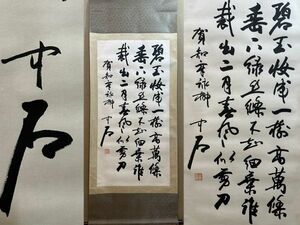 中石
碧玉妝成一樹高萬條
垂下綠絲絛不知細葉誰
裁出二月春風似剪刀
賀知章詠柳 中石
碧玉妝成一樹高萬條
垂下綠絲絛不知細葉誰
裁出二月春風似剪刀
賀知章詠柳 中石